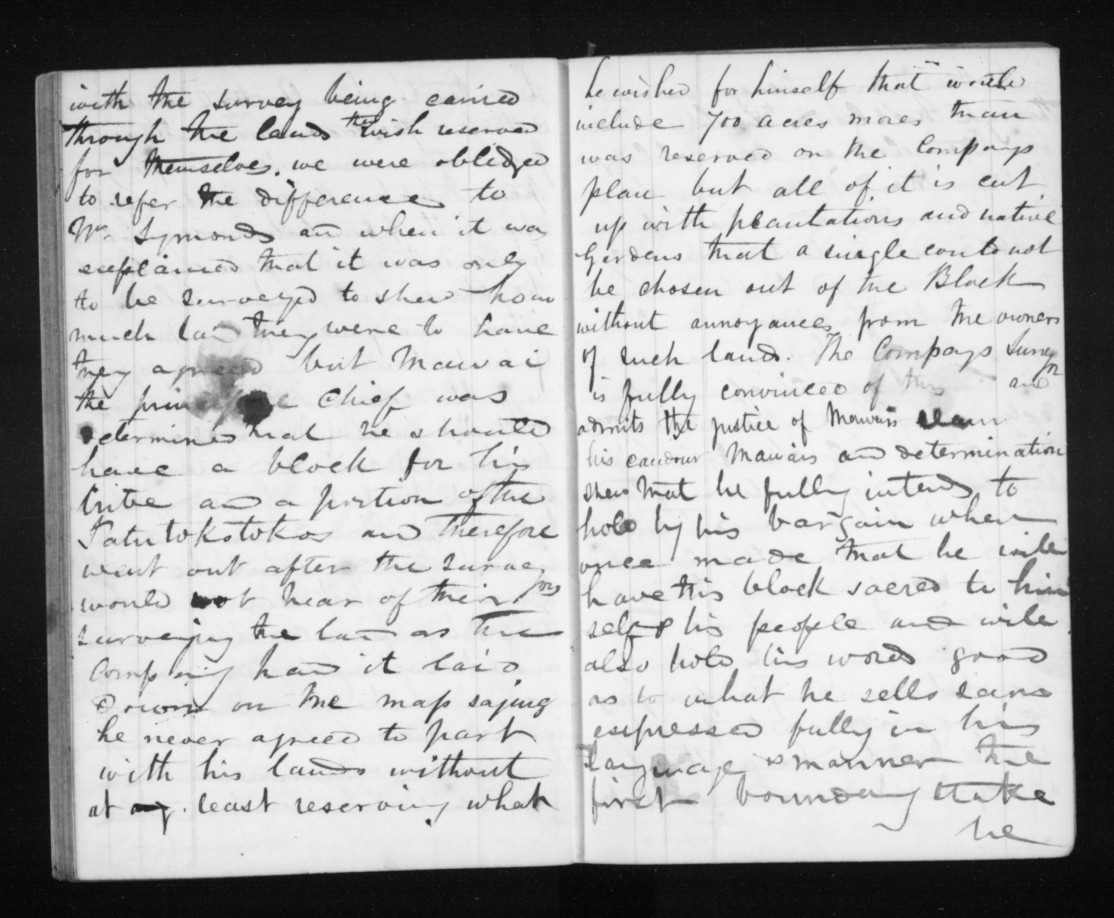 with the survey being carried
through the lands they wish reserved
for themselves. we were obliged
to refer the difference to
Mr. Symonds and when it was
explained that it was only
to be surveyed to shew how
much land they were to have
they agreed but Mawai
the chief was
determined that he should
have a block for his
tribe and a portion of the
Patutokotokos and therefore
went out after the surveyors
would not hear of their
surveying the land as the
Company had it laid
down on the map saying
he never agreed to part
with his lands without
at least reserving what
he wished for himself that would
include 700 acres mores than
was reserved on the Companys
plan but all of it is cut
up with plantations and native
Gardens that a single could not
be chosen out of the Block
without annoyances from the owners
of such lands. The Companys Surveyor
is fully convinced of this and
admits the justice of Mawais
his candour Mawais and determination
shew that he fully intends to
hold by his bargain when
once made that he will
have this block sacred to him
self & his people and will
also hold his word good
as to what he sells and
expressed fully in his
language & manner the
first boundary stake
he